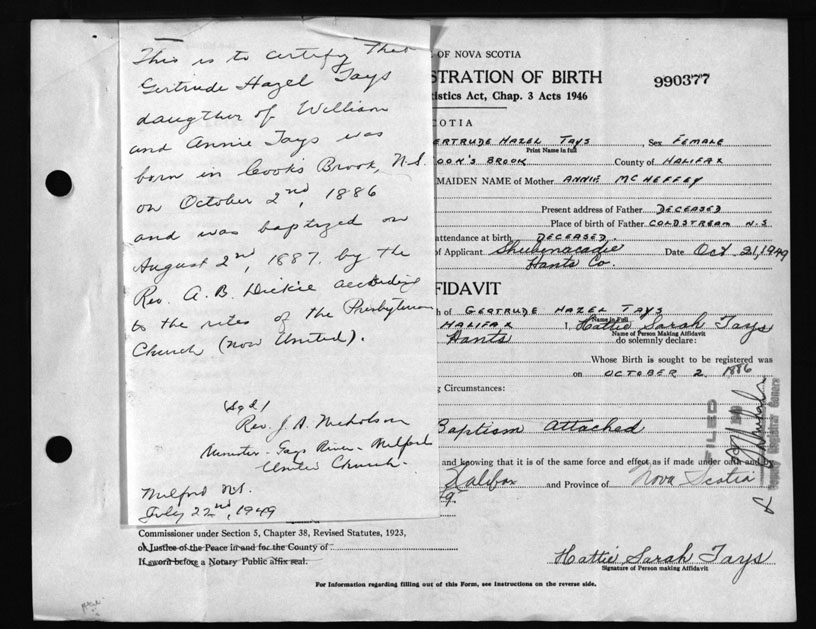 This is to certify That
Gertrude Hazel Tays
daugther of William
and Annie Tays was
born in Cooks Brook, N.S.
on October 2nd, 1886
and was baptized on
August 2nd, 1887. by the
Rev. A. B. Dickie according
to the rites of the Presbyterian
Church (now United).
Sgd /
Rev. J. A. Nicholson
Minister - Gays River - Milford
United Church -
Milford N.S.
July 22nd, 1949
OF NOVA SCOTIA
STRATION OF BIRTH
990377
istics Act, Chap. 3 Acts 1946
COTIA
ERTRUDE HAZEL TAYS, Sex FEMALE
Print Name in full
OOK'S BROOK County of HALIFAX
MAIDEN NAME of Mother ANNIE MCHEFFEY
Present address of Father DECEASED
Place of birth of Father COLDSTREAM N.S
attendance at birth DECEASED.
of Applicant Shubenacadie Date Oct 21, 1949
Hants Co.
FIDAVIT
h of GERTRUDE HAZEL TAYS
Name in Full
HALIFAX I, Hattie Sarah Tays
Name of Person Making Affidavit
Hants do solemnly declare:
Whose Birth is sought to be registered was
on OCTOBER 2, 1886
g Circumstances:
Baptism Attached
FILED
and knowing that it is of the same force and effect as if made under oath and
Halifax and Province of Nova Scotia
19
Commissioner under Section 5, Chapter 38, Revised Statutes, 1923,
or Justice of the Peace in and for the County of
If sworn before a Notary Public affix seal.
Hattie Sarah Tays
Signature of Person making Affidavit
For Information regarding filling out of this Form, see instructions on the reverse side.